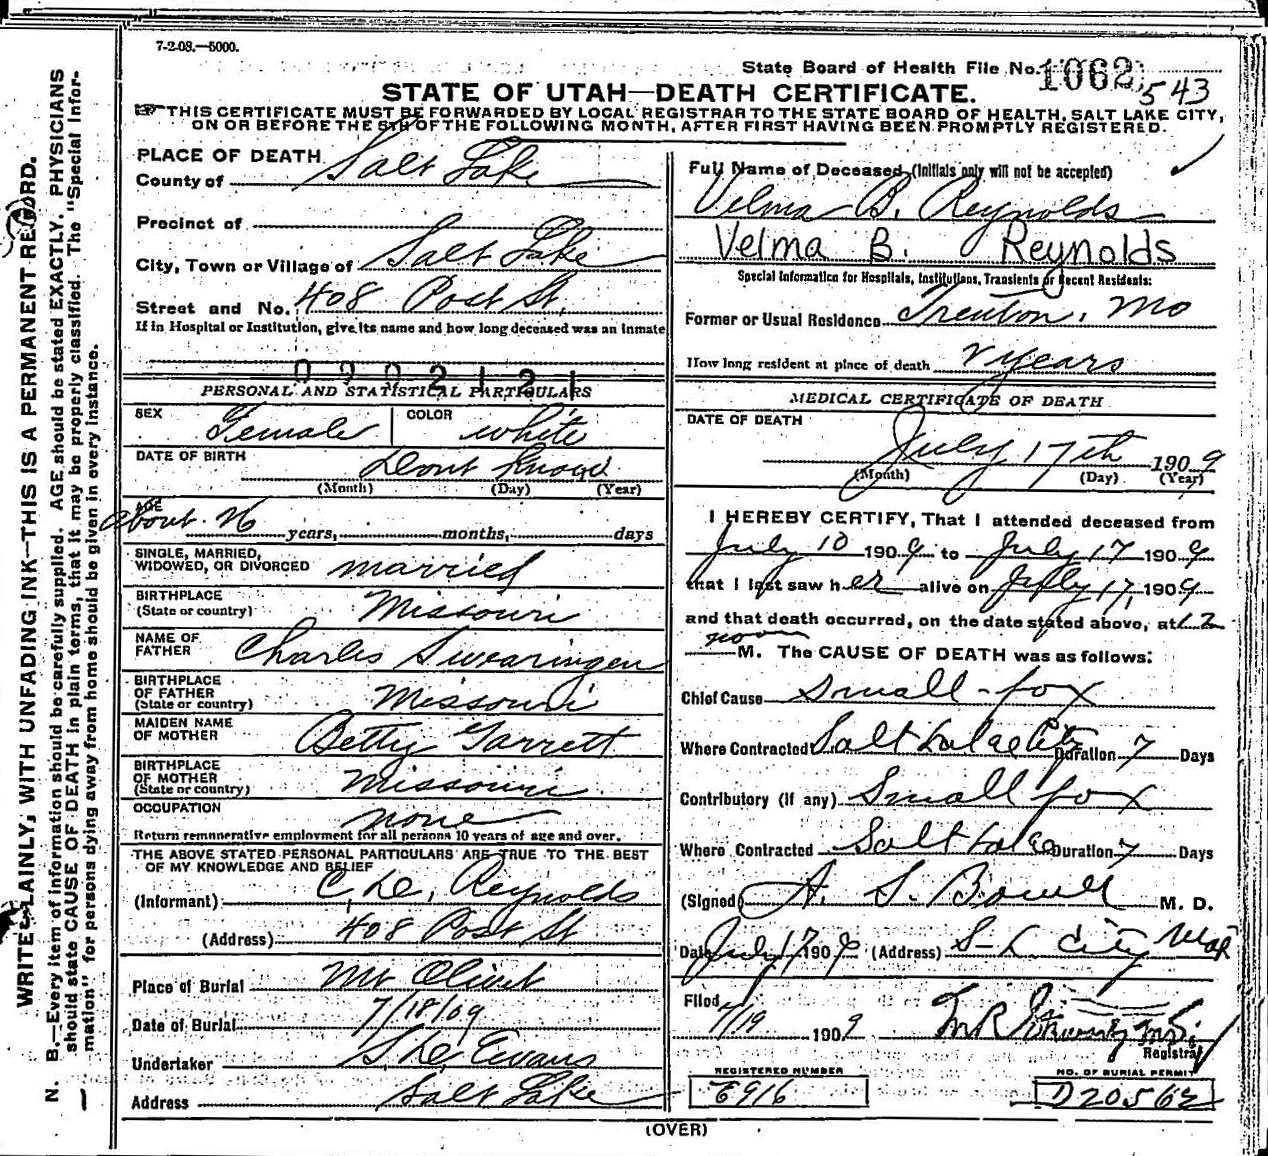 7-2-08.—5000.
State Board of Health File No. 1062 543
STATE OF UTAH—DEATH CERTIFICATE.
THIS CERTIFICATE MUST BE FORWARDED BY LOCAL REGISTRAR TO THE STATE BOARD OF HEALTH, SALT LAKE CITY,
ON OR BEFORE THE 5TH OF THE FOLLOWING MONTH, AFTER FIRST HAVING BEEN PROMPTLY REGISTERED.
WRITE PLAINLY, WITH UNFADING INK—THIS IS A PERMANENT RECORD.
N. B.—Every item of information should be carefully supplied. AGE should be stated EXACTLY. PHYSICIANS
should state CAUSE OF DEATH in plain terms, that it may be properly classified. The "Special Infor-
mation" for persons dying away from home should be given in every instance.
PLACE OF DEATH
County of Salt Lake
Precinct of
City, Town or Village of Salt Lake
Street and No. 408 Post St.
If in Hospital or Institution, give its name and how long deceased was an inmate
PERSONAL AND STATISTICAL PARTICULARS
SEX Female COLOR white
DATE OF BIRTH Dont Know
(Month) (Day) (Year)
AGE
about 26 years, months, days
SINGLE, MARRIED,
WIDOWED, OR DIVORCED married
BIRTHPLACE
(State or country) Missouri
NAME OF
FATHER Charles Swearingen
BIRTHPLACE
OF FATHER
(State or country) Missouri
MAIDEN NAME
OF MOTHER Betty Garrett
BIRTHPLACE
OF MOTHER
(State or country) Missouri
OCCUPATION none
Return remunerative employment for all persons 10 years of age and over.
THE ABOVE STATED PERSONAL PARTICULARS ARE TRUE TO THE BEST
OF MY KNOWLEDGE AND BELIEF
(Informant) Reynolds
(Address) 408 Post St
Place of Burial Mt Olivet
Date of Burial 7/18/09
Undertaker Evans
Address Salt Lake
Full Name of Deceased (Initials only will not be accepted)
Velma B. Reynolds
Velma B. Reynolds
Special Information for Hospitals, Institutions, Transients or Recent Residents:
Former or Usual Residence Trenton, Mo
How long resident at place of death 2 years
MEDICAL CERTIFICATE OF DEATH
DATE OF DEATH
July 17th 1909
(Month) (Day) (Year)
I HEREBY CERTIFY, That I attended deceased from
July 10 1909 to July 17 1909
that I last saw her alive on July 17, 1909
and that death occurred, on the date stated above, at 12
noon M. The CAUSE OF DEATH was as follows:
Chief Cause Small-pox
Where Contracted Salt Lake City Duration 7 Days
Contributory (if any) Small pox
Where Contracted Salt Lake Duration 7 Days
(Signed) A. S. M. D.
Date July 17 1909 (Address) S L City
Filed 7/19 1909
Registrar
REGISTERED NUMBER
E916
NO. OF BURIAL PERMIT
D20562
(OVER)